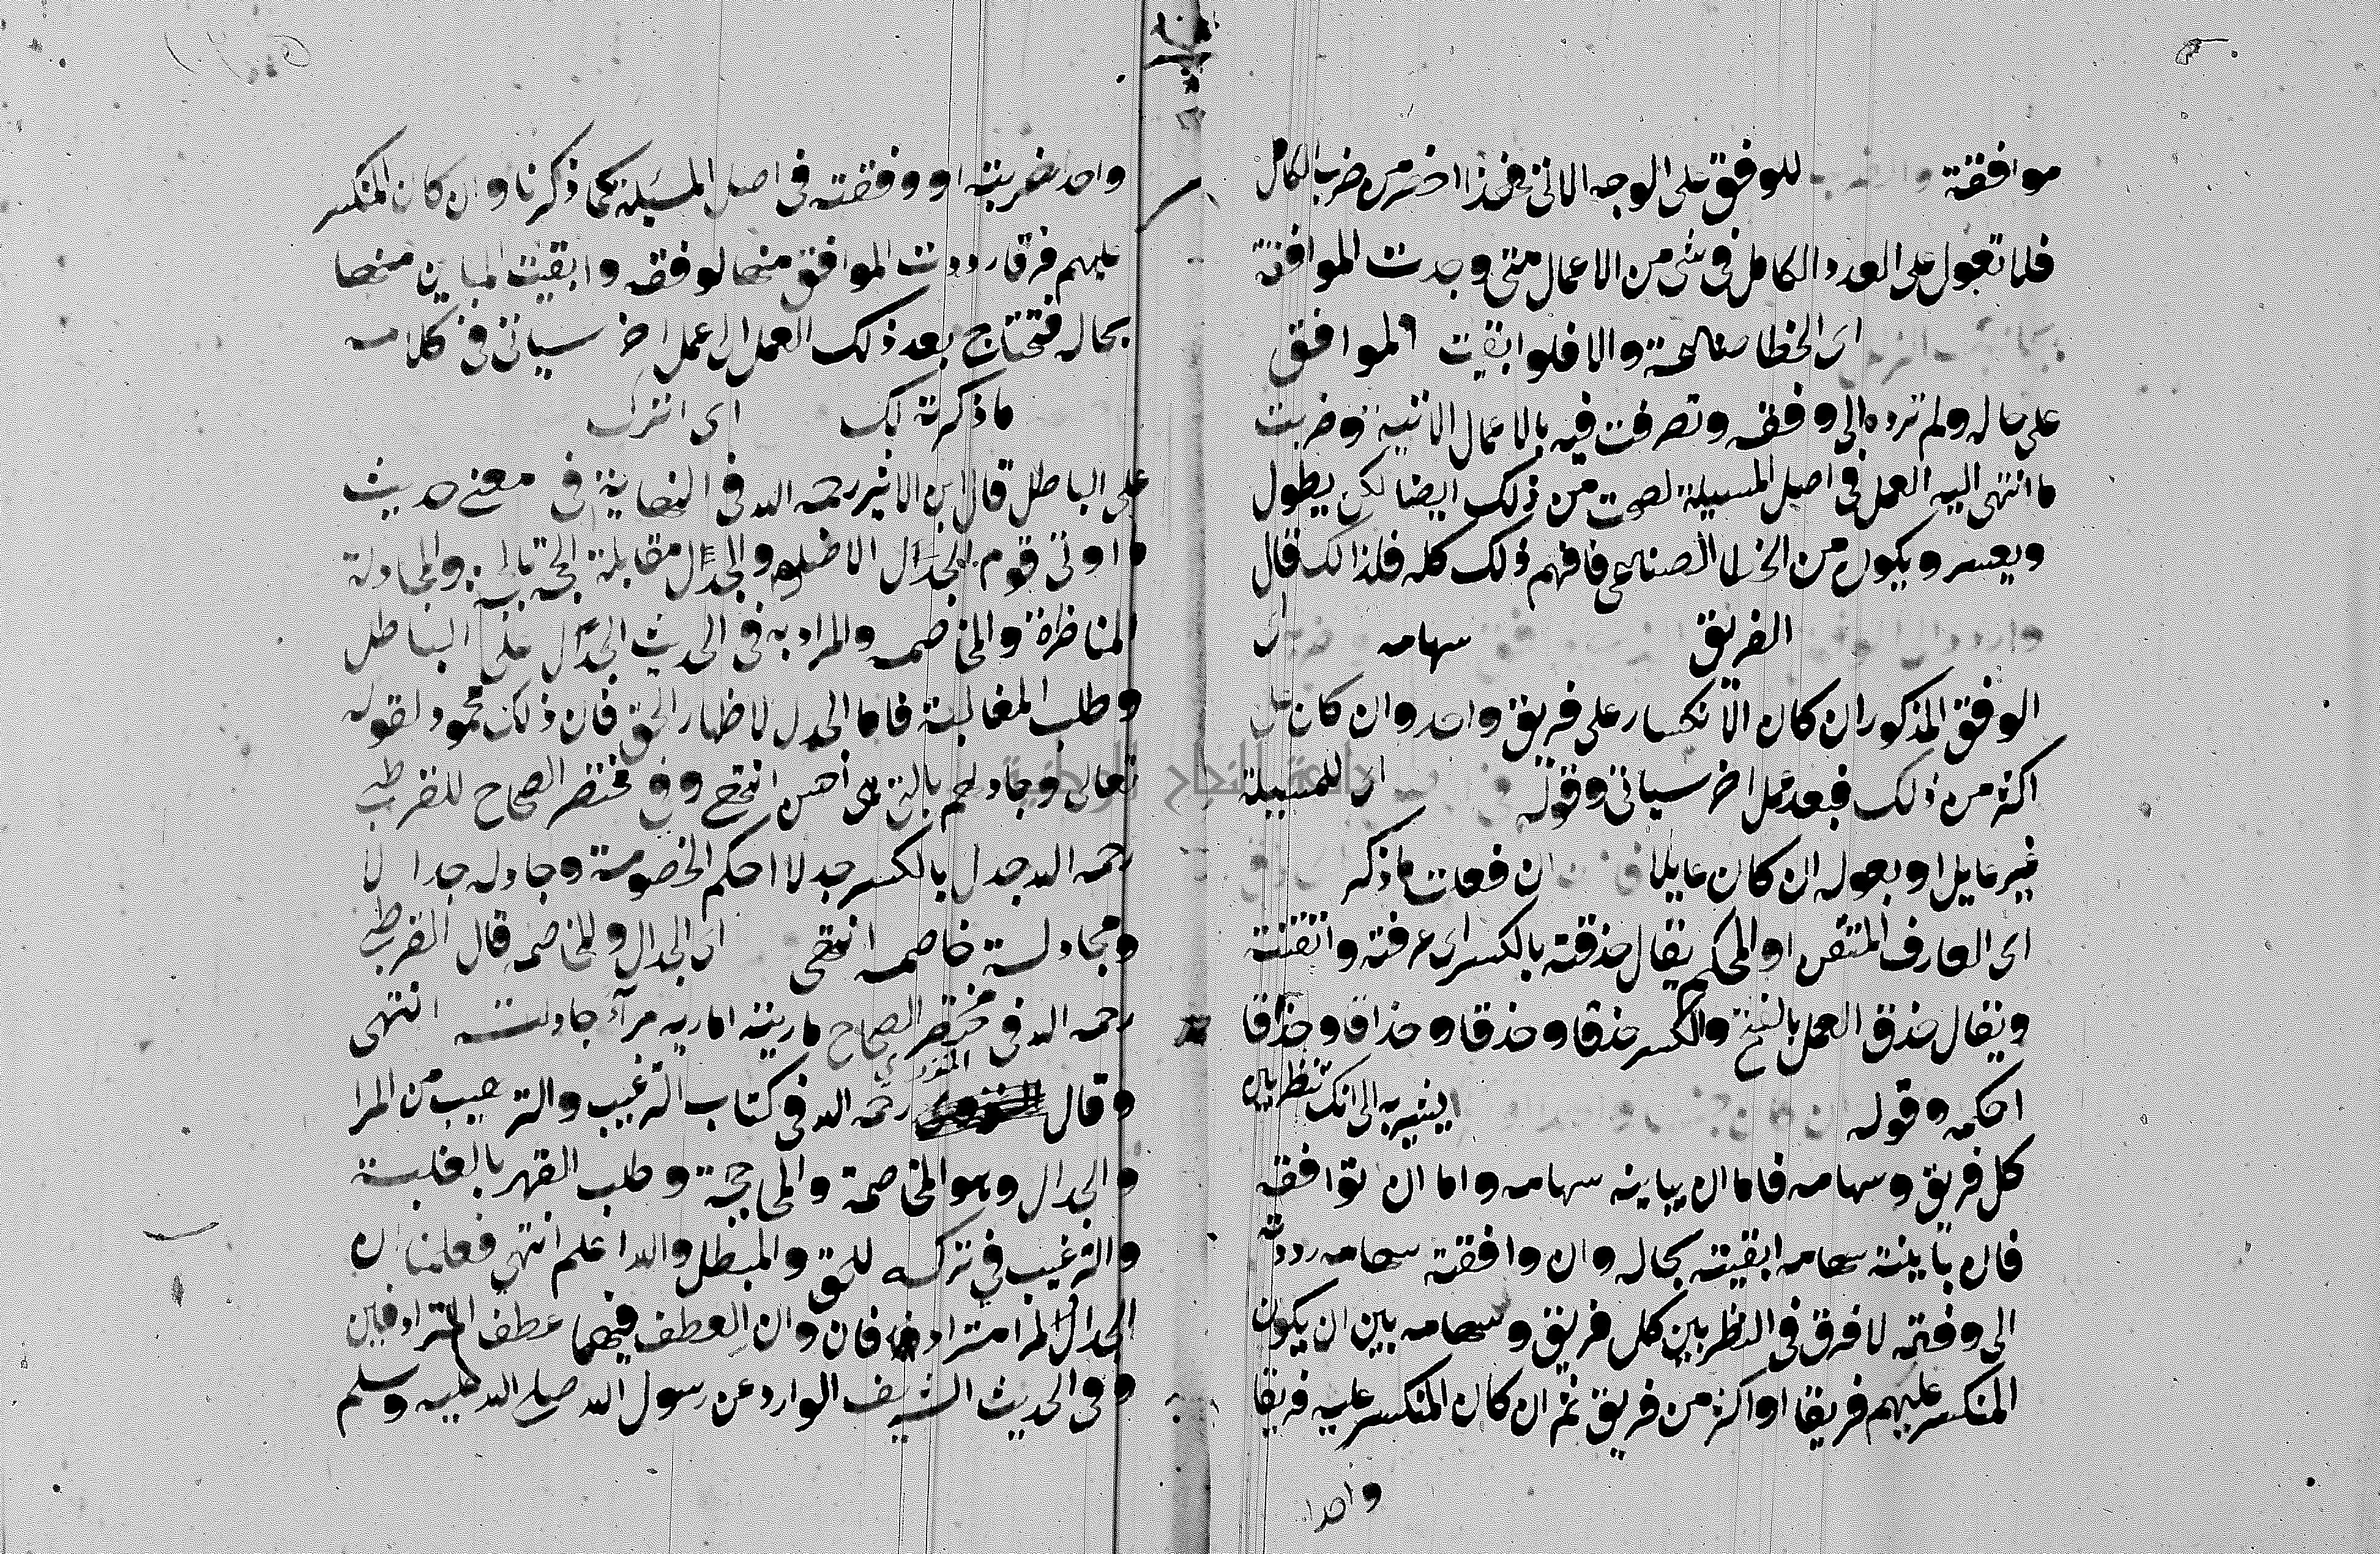 موافقة للوفق على الوجه الاتى فهذا اخصر من ضرب الكامل
فلا تعول على العدد الكامل فى شى من الاعمال متى وجدت الموافقة
اى الخطا صناعة والا فلو ابقيت الموافق
على حاله ولم ترده الى وفقه وتصرفت فيه بالاعمال الاتية وضربت
ما انتهى اليه العمل فى اصل المسيلة لصحت من ذلك ايضا لكن يطول
ويعسر ويكون من الخطا الصناعى فافهم ذلك كله فلذالك قال
الفريق سهامه اى
الوفق المذكور ان كان الانكسار على فريق واحد وان كان على
اكثر من ذلك فبعد عمل اخر سياتى وقوله اى للمسيلة
غير عايل او بعوله ان كان عايلا ان فعلت ما ذكر
اى العارف المتقن او المحكم يقال حذقته بالكسر اى عرفته واتقنته
ويقال حذق العمل بالفتح والكسر حذقا وحذقا وحذاقا وحذاقا
احكمه وقوله يشير به الى انك تنظر بين
كل فريق وسهامه فاما ان يباينه سهامه واما ان توافقه
فان باينته سهامه ابقيته بحاله وان وافقته سهامه رددته
الى وفقه لا فرق فى النظر بين كل فريق وسهامه بين ان يكون
المنكسر عليهم فريقا او اكثر من فريق ثم ان كان المنكسر عليه فريقا
واحدا
واحدا ضربته او وفقته فى اصل المسئلة كما ذكرنا وان كان المنكسر
عليهم فرقا رددت الموافق منها لوفقه وابقيت المباين منها
بحاله فتحتاج بعد ذلك العمل الى عمل اخر سياتى فى كلامه
ما ذكرته لك اى اترك
على الباطل قال ابن الاثير رحمه الله فى النهاية فى معنى حديث
ما اوتى قوم الجدال الا ضلوا والجدل مقابلة الحجة بالحجة والمجادلة
المناظرة والمخاصمه والمراد به فى الحديث الجدل على الباطل
وطلب المغالبة فاما الجدل لاظهار الحق فان ذلك محمود لقوله
تعالى وجادلهم بالتى هى احسن انتهى وفى مختصر الصحاح للقرطبى
رحمه الله جدل بالكسر جدلا احكم الخصومة وجادله جدالا
ومجادلة خاصمه انتهى اى الجدال والمخاصمه قال القرطبى
رحمه الله فى مختصر الصحاح ماريته اماريه مرآء جادلته انتهى
وقال المنذرى رحمه الله فى كتاب الترغيب والترهيب من المرا
والجدال وهو المخاصمة والمحاججة وطلب القهر بالغلبة
والترغيب فى تركه للمحق والمبطل والله اعلم انتهى فعلمنا ان
الجدال المرا مترادفان وان العطف فيهما عطف المترادفين
وفى الحديث الشريف الوارد عن رسول الله صلى الله عليه وسلم
جامعة النجاح الوطنية